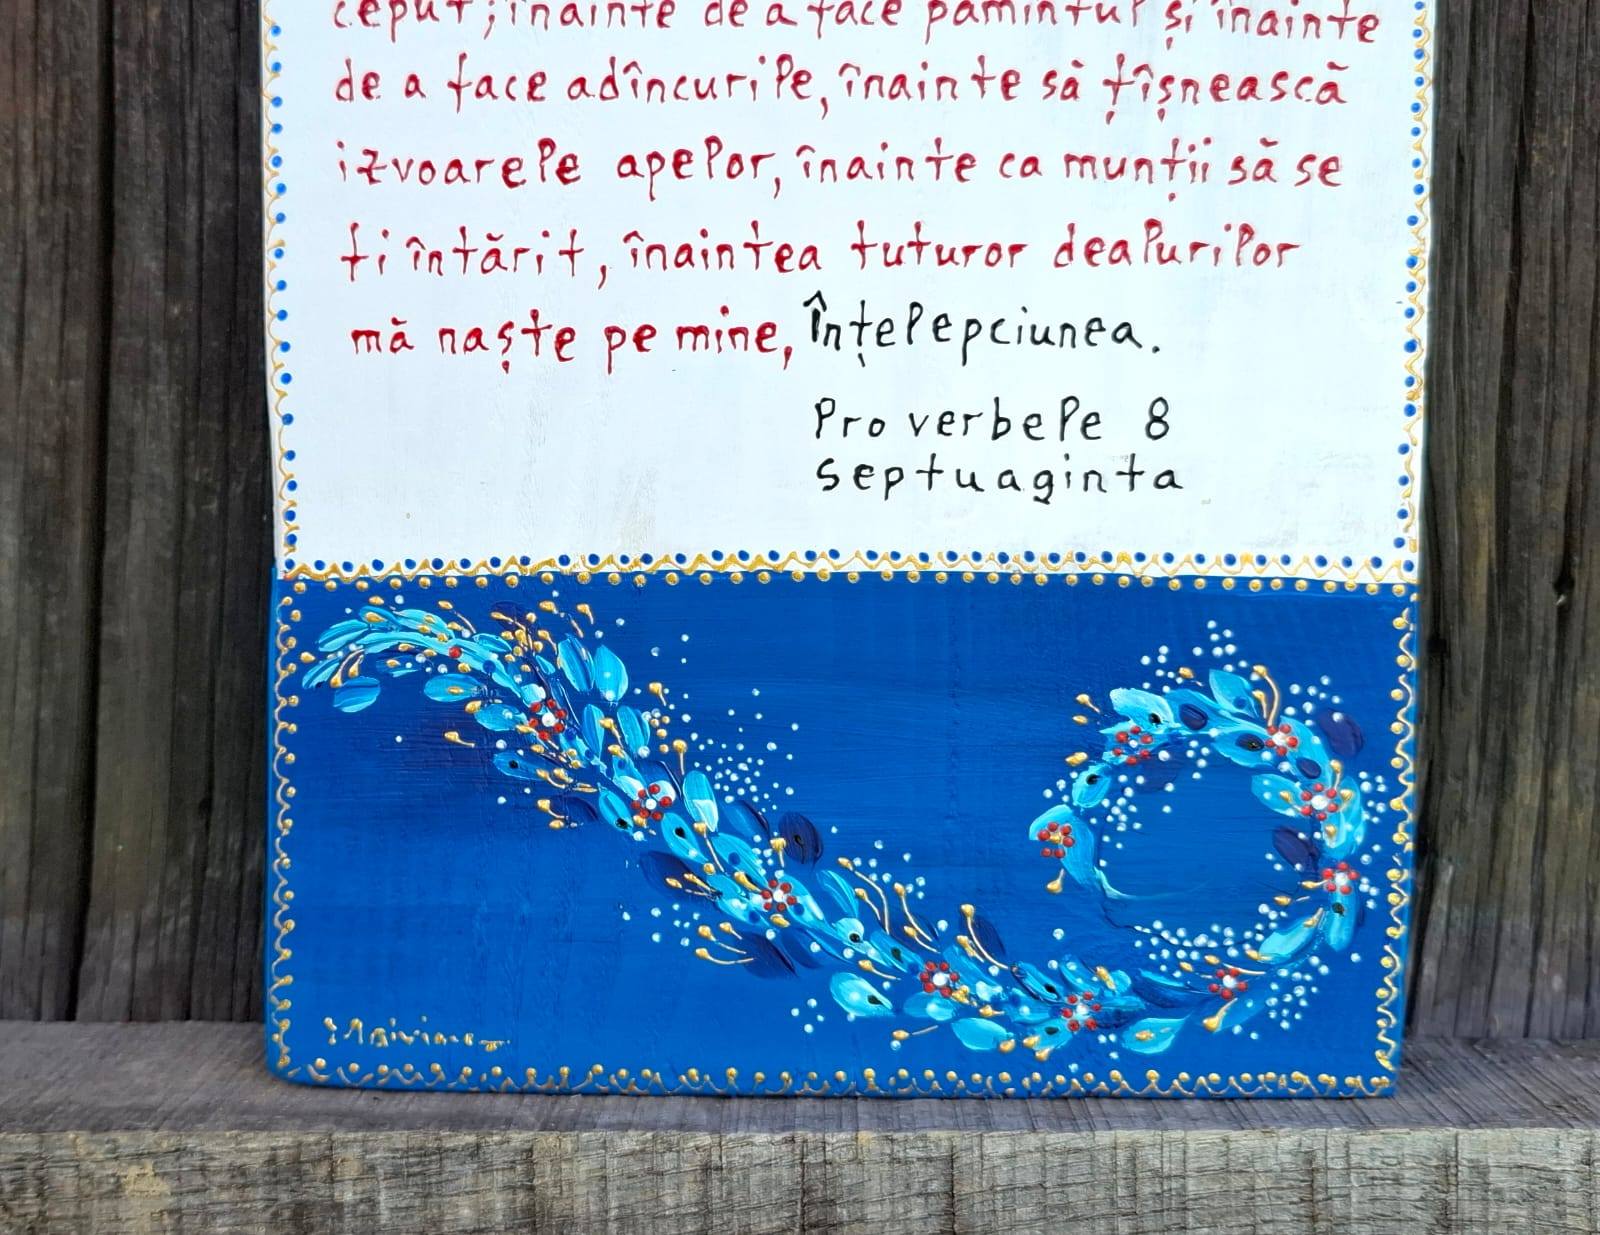 ceput; înainte de a face pămîntul și înainte
de a face adîncurile, înainte să țîșnească
izvoarele apelor, înainte ca munții să se
fi întărit, înaintea tuturor dealurilor
mă naște pe mine, Înțelepciunea.
Proverbele 8
septuaginta